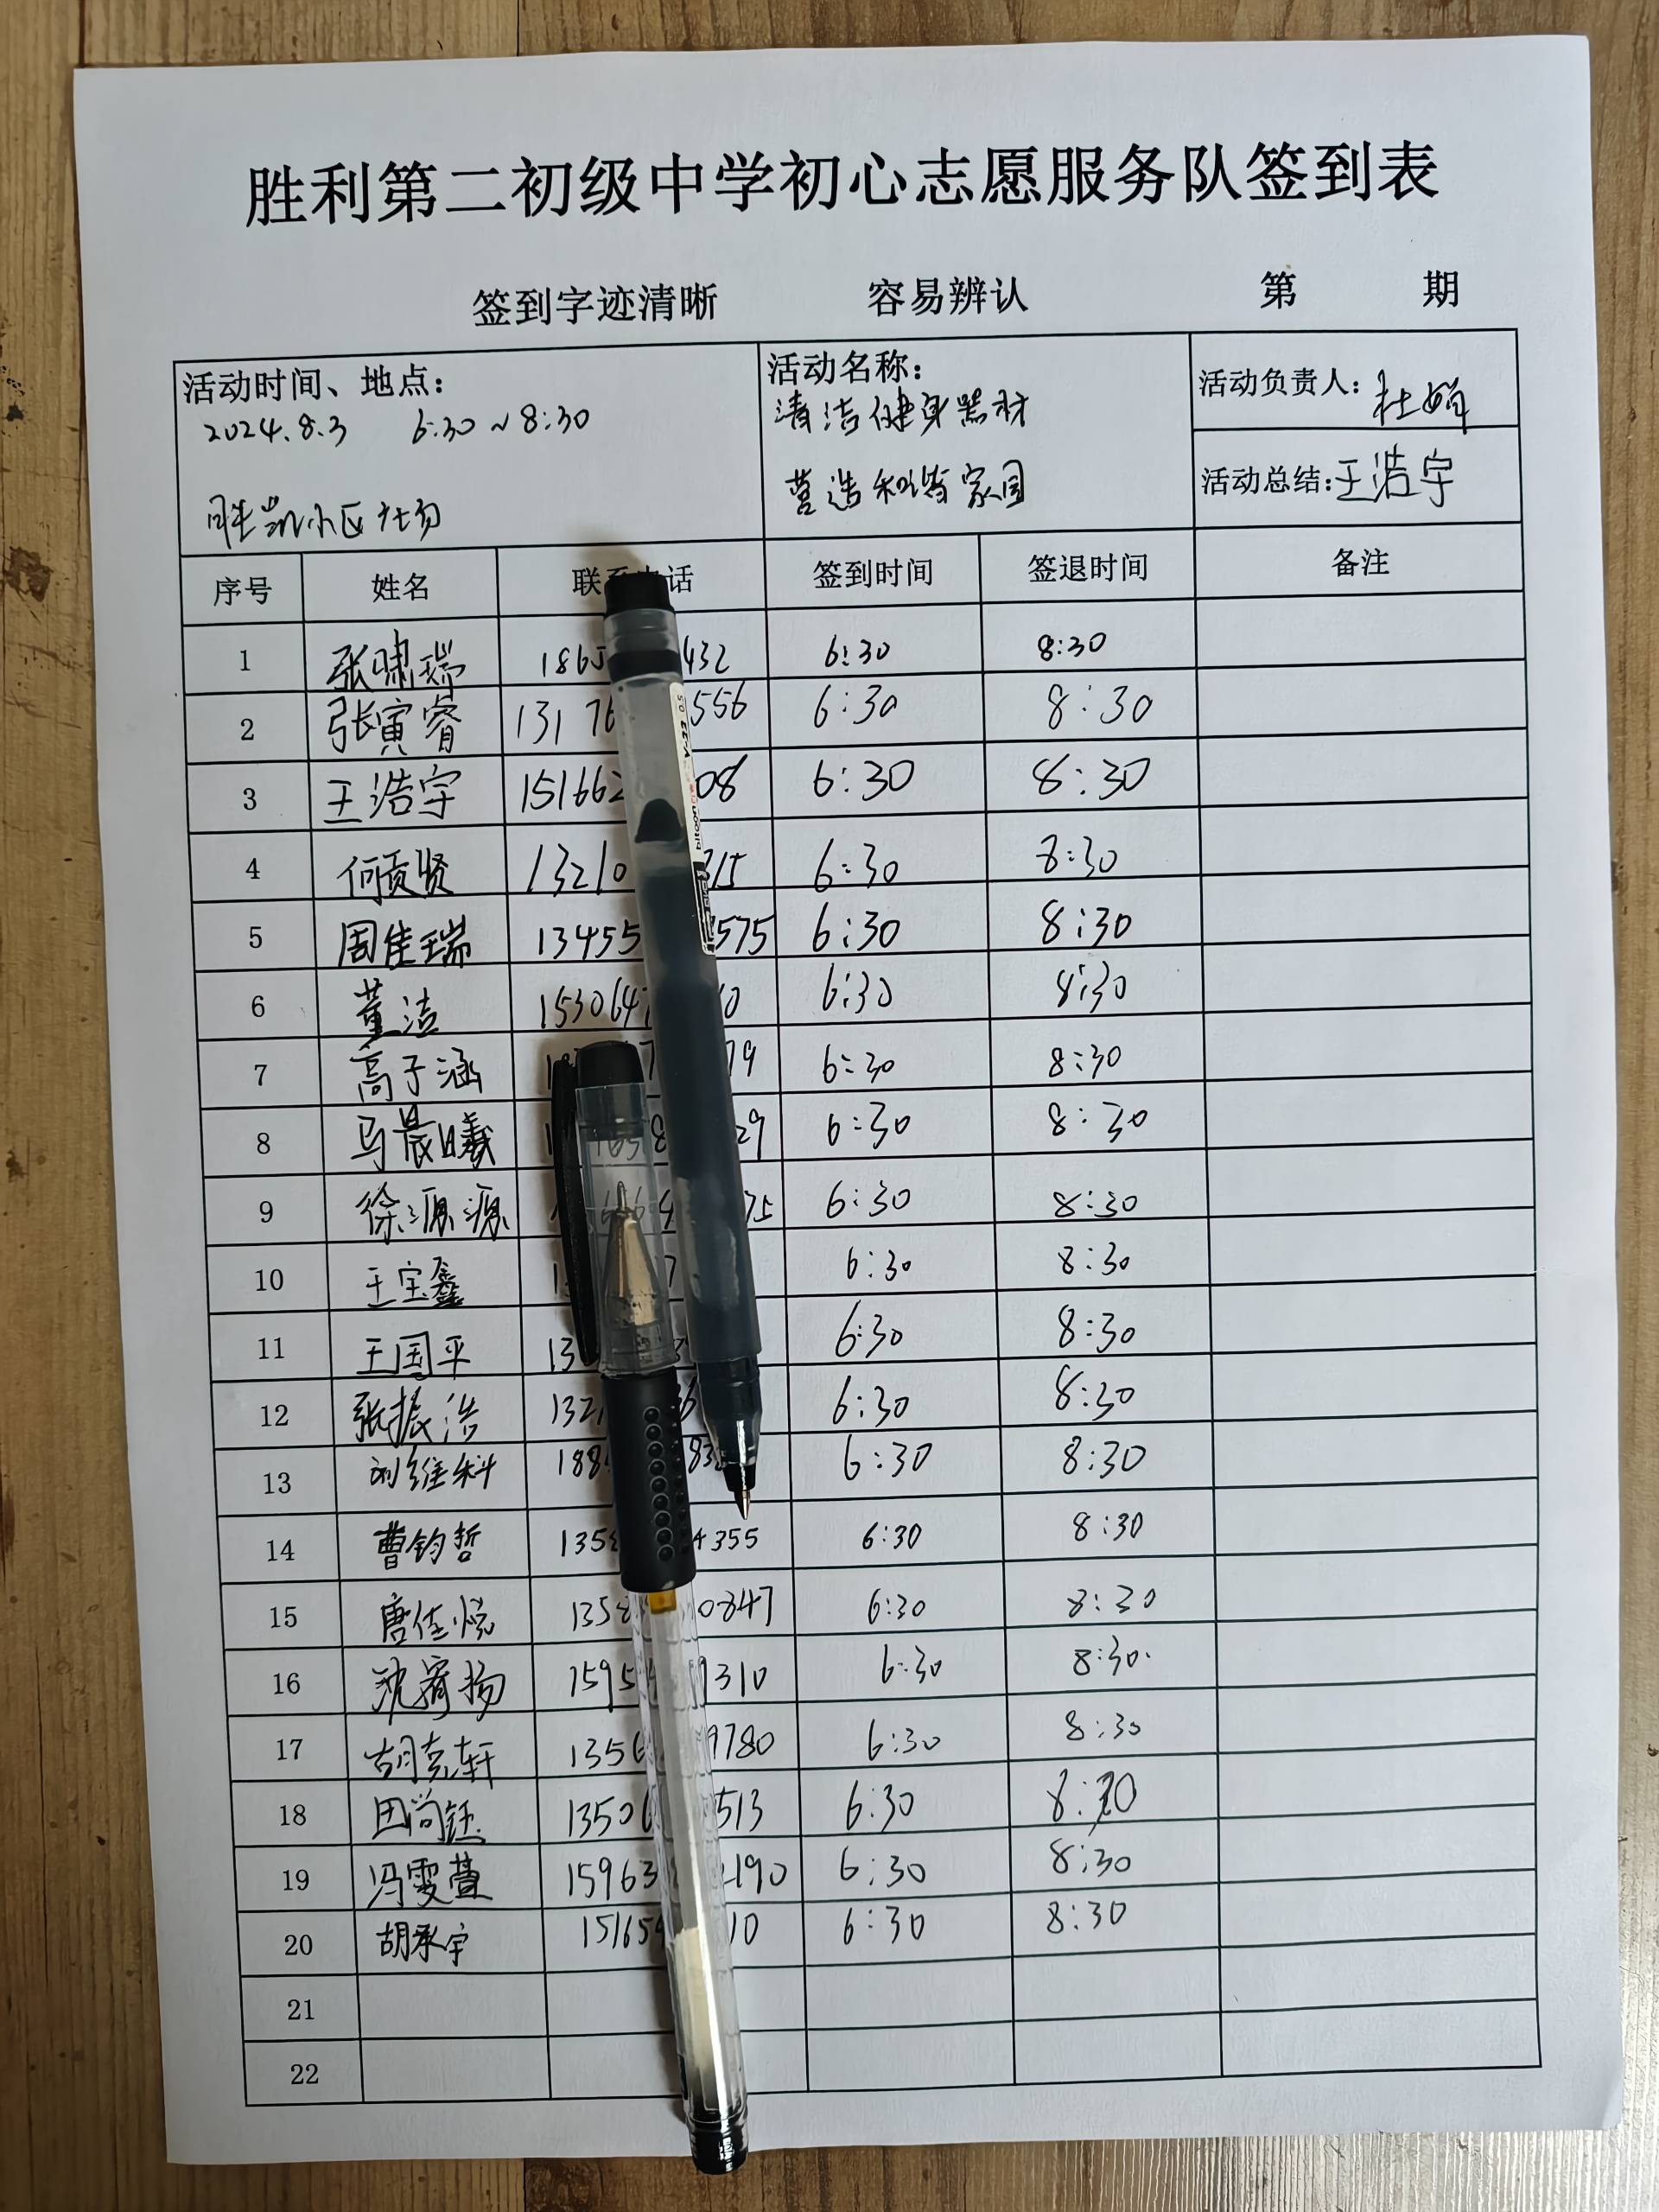 胜利第二初级中学初心志愿服务队签到表
签到字迹清晰 容易辨认 第 期
活动时间、地点：
2024.8.3 6:30~8:30
胜凯小区 广场
活动名称：
清洁健身器材
营造和谐家园
活动负责人：杜娟
活动总结：王浩宇
序号 姓名 联系电话 签到时间 签退时间 备注
1 张啸瑞 186 432 6:30 8:30
2 张寅睿 13176 556 6:30 8:30
3 王浩宇 151662 08 6:30 8:30
4 何贡贤 13210 715 6:30 8:30
5 周佳瑞 13455 575 6:30 8:30
6 董洁 153064 0 6:30 8:30
7 高子涵 79 6:30 8:30
8 马晨曦 29 6:30 8:30
9 徐源源 75 6:30 8:30
10 王宝鑫 6:30 8:30
11 王国平 13 6:30 8:30
12 张振浩 132 6:30 8:30
13 刘维科 188 83 6:30 8:30
14 曹钧哲 135 4355 6:30 8:30
15 唐佳悦 1358 0847 6:30 8:30
16 沈宥扬 1595 9310 6:30 8:30
17 胡克轩 1356 9780 6:30 8:30
18 田尚钰 13506 513 6:30 8:30
19 冯雯萱 15963 2190 6:30 8:30
20 胡承宇 15165 10 6:30 8:30
21
22